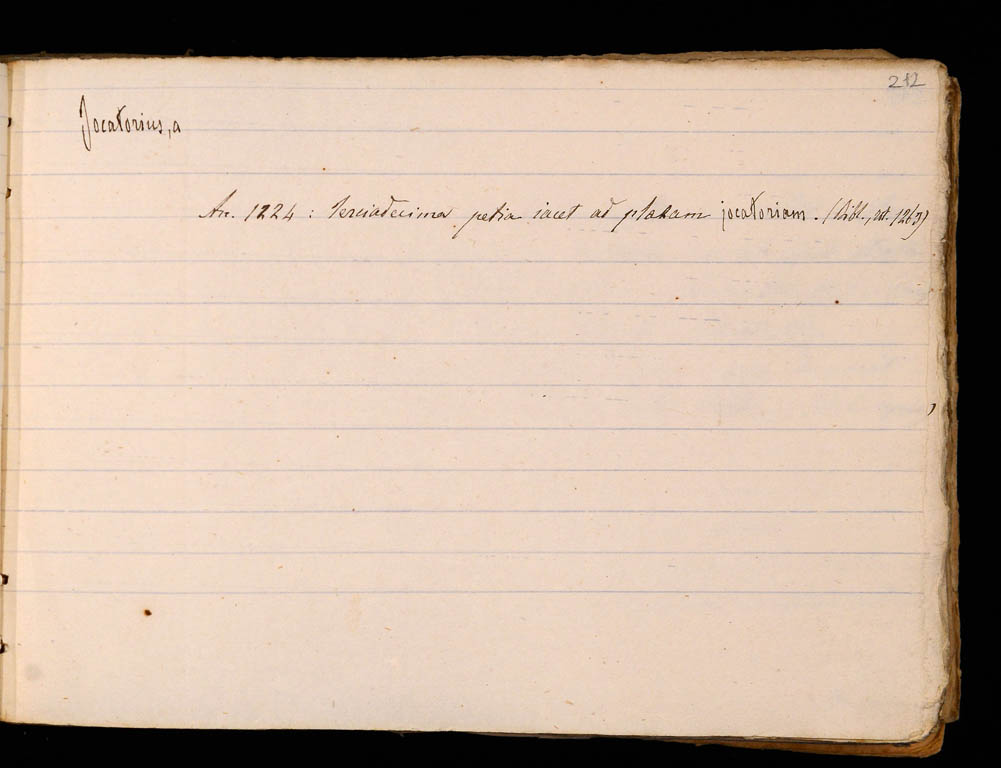 212
Jocatorius, a
An. 1224 : terciadecima petia iacet ad plazam jocatoriam. (Bibl., rot. 1263)